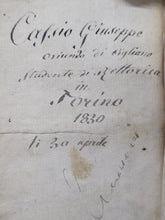 Cassio Giuseppe
oriundo di Cigliano
Studente di Rettorica
in
Torino
1830
li 30 aprile